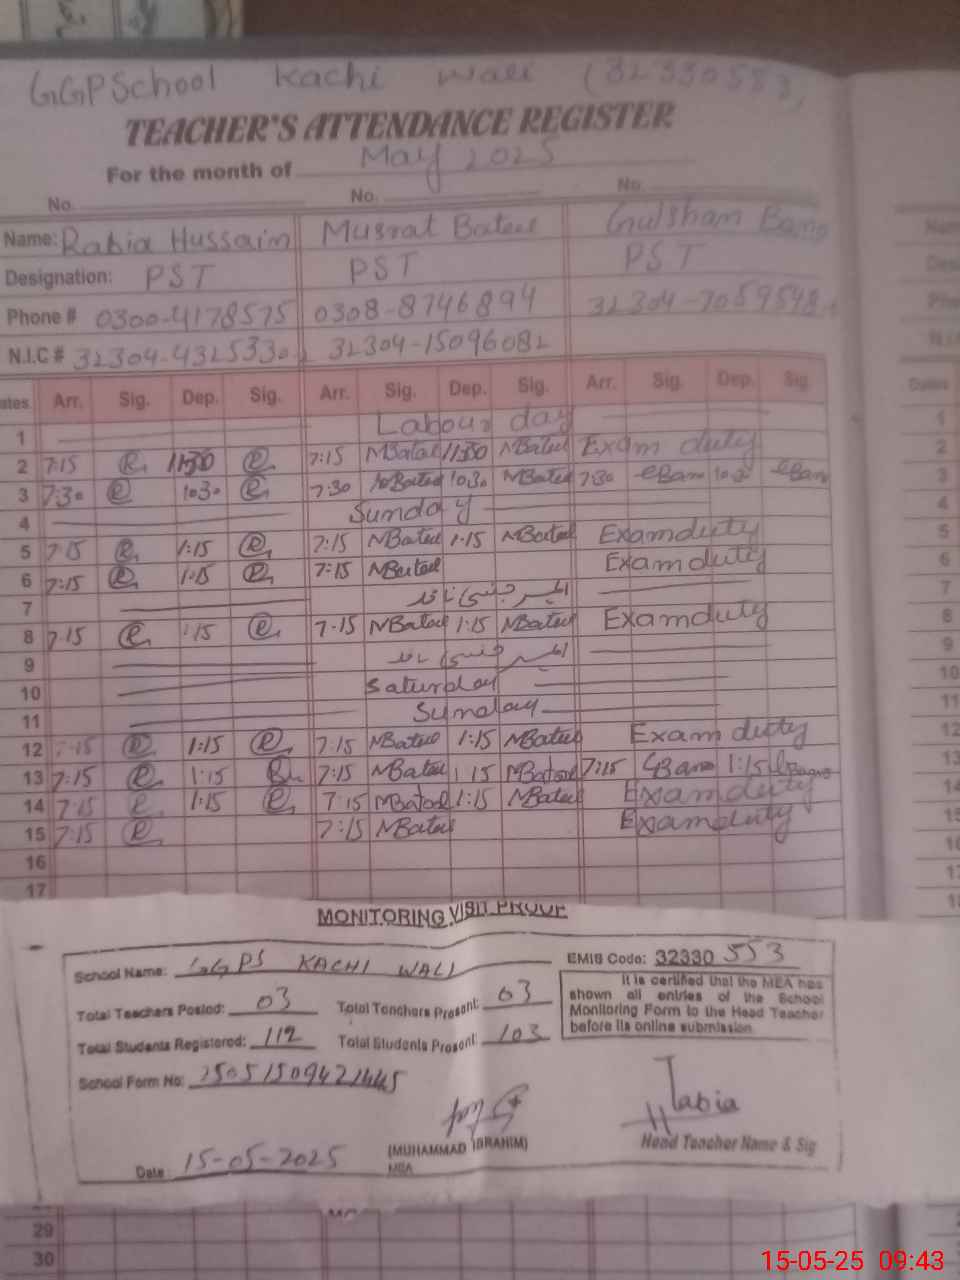 GGPSchool Kachi Wali (32330553)
TEACHER'S ATTENDANCE REGISTER
For the month of May 2025
No. No. No.
Name: Rabia Hussain Musrat Batul Gulsham Bano
Designation: PST PST PST
Phone # 0300-4178575 0308-8746894 32304-7059548
N.I.C # 32304-4325330 32304-15096082
Dates Arr. Sig. Dep. Sig. Arr. Sig. Dep. Sig. Arr. Sig. Dep. Sig.
1 Labour day
2 7:15 11:30 7:15 MBatul 11:30 MBatul Exam duty
3 7:30 10:30 7:30 MBatul 10:30 MBatul 7:30 Bano 10:30 Bano
4 Sunday
5 7:15 1:15 7:15 MBatul 1:15 MBatul Examduty
6 7:15 1:15 7:15 MBatul Examduty
7
8 7:15 1:15 7:15 MBatul 1:15 MBatul Examduty
9
10 Saturday
11 Sunday
12 7:15 1:15 7:15 MBatul 1:15 MBatul Exam duty
13 7:15 1:15 7:15 MBatul 1:15 MBatul 7:15 GBano 1:15
14 7:15 1:15 7:15 MBatul 1:15 MBatul Examduty
15 7:15 7:15 MBatul Examduty
16
17
MONITORING VISIT PROOF
School Name: GGPS KACHI WALI EMIS Code: 32330 553
Total Teachers Posted: 03 Total Teachers Present: 03
Total Students Registered: 112 Total Students Present: 103
It is certified that the MEA has
shown all entries of the School
Monitoring Form to the Head Teacher
before its online submission.
School Form No:
(MUHAMMAD IBRAHIM)
MEA
Rabia
Head Teacher Name & Sig
Date: 15-05-2025
29
30
15-05-25 09:43